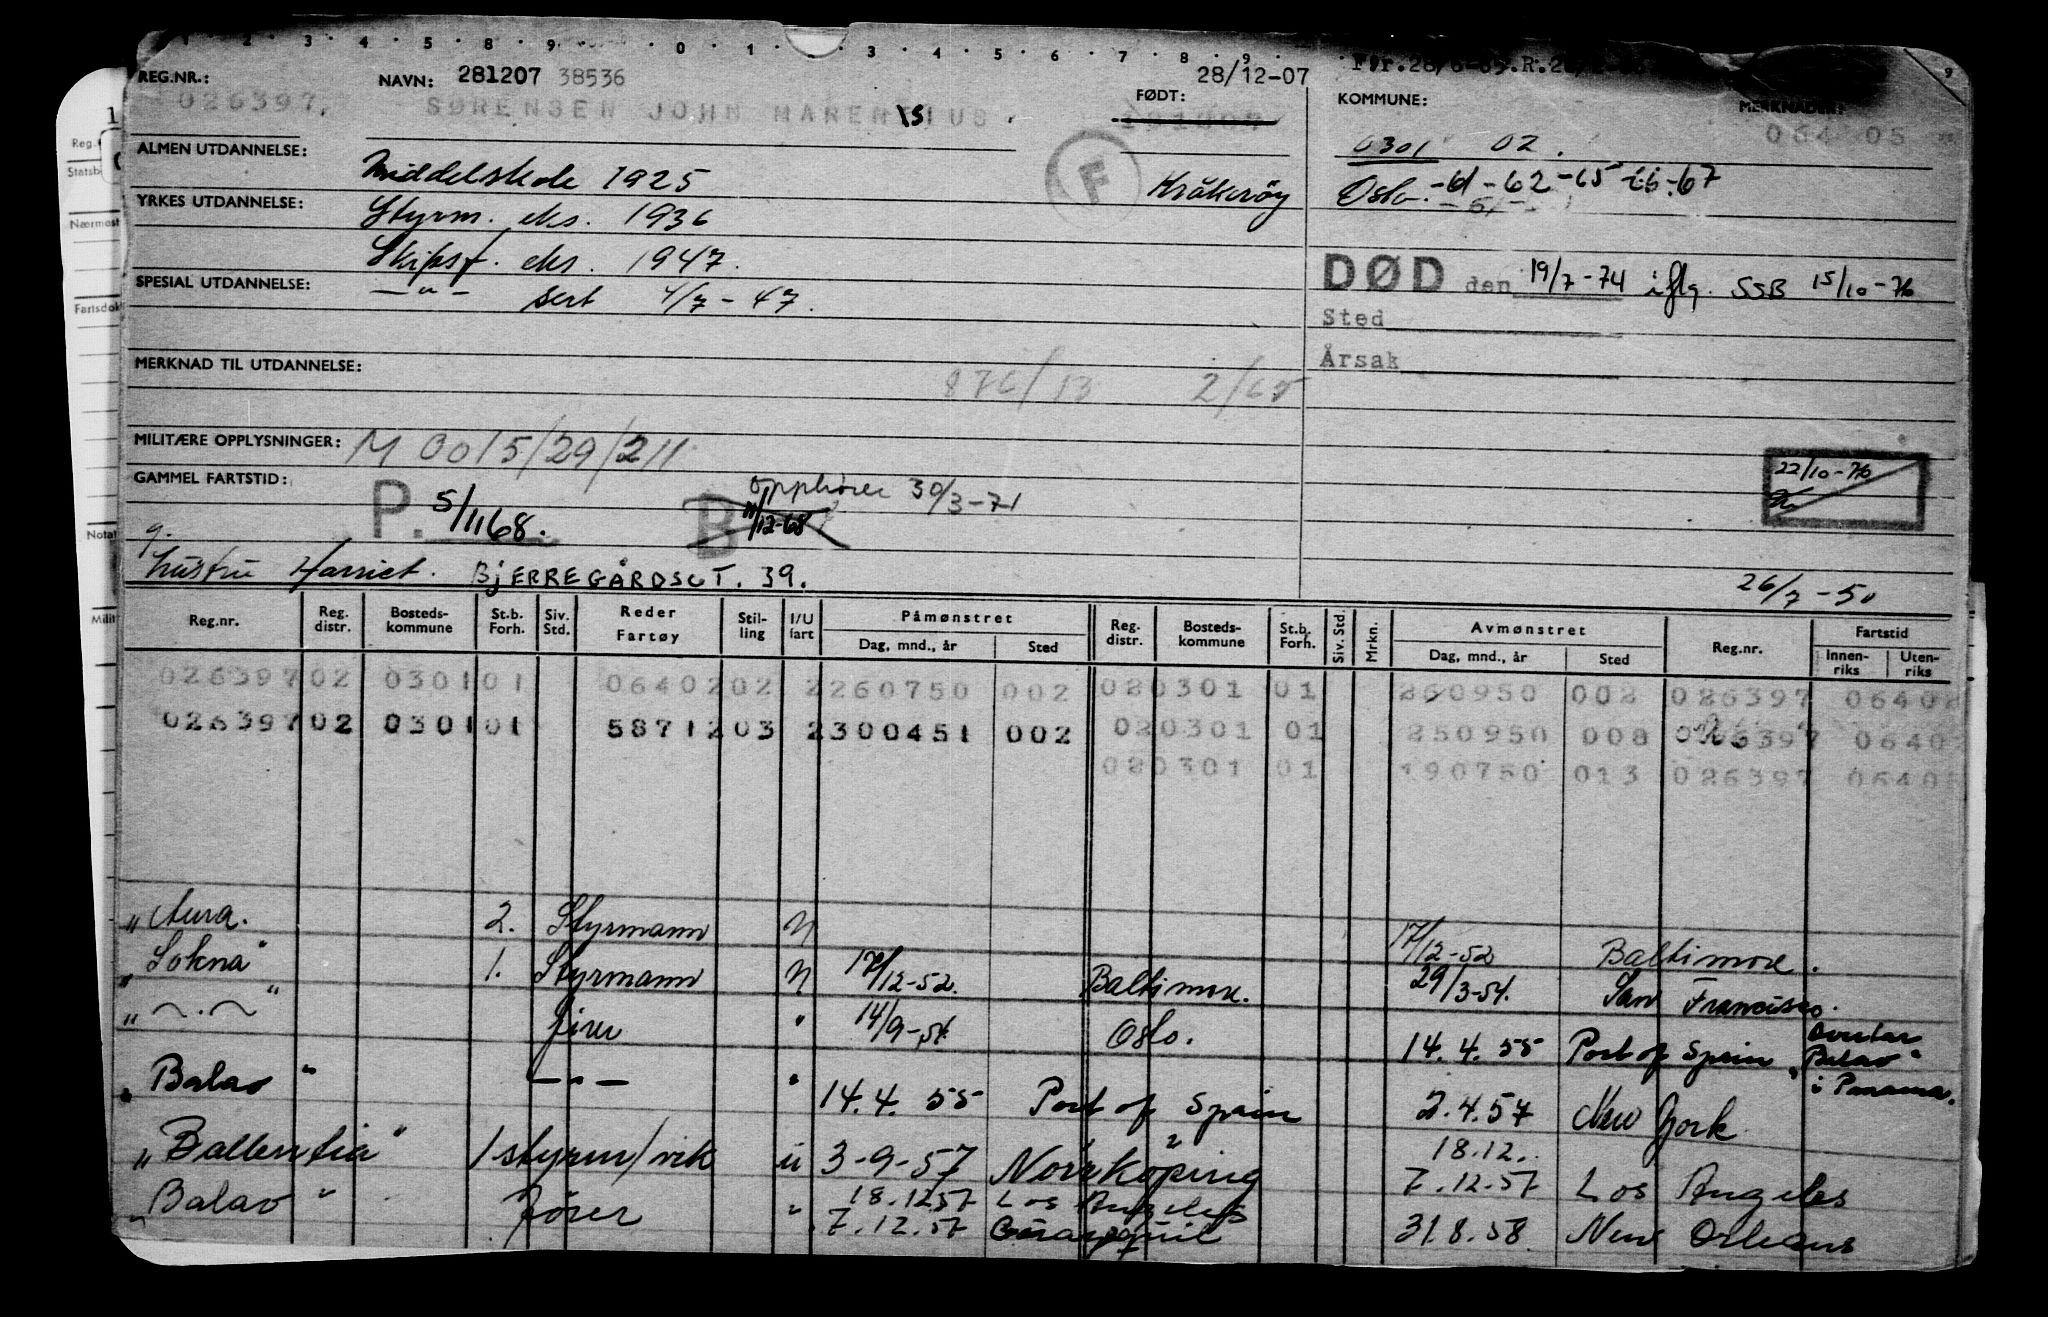 REG.NR.: NAVN: 281207 38536 28/12-07
026397. SØRENSEN JOHN MARENSIUS. FØDT: KOMMUNE: MERKNADER:
0301 02. 064 05
ALMEN UTDANNELSE: Middelskole 1925 F Kråkerøy Oslo. -61-62-65-66-67
YRKES UTDANNELSE: Styrm. eks. 1936
Skipsf. eks. 1947.
SPESIAL UTDANNELSE: —"— sert 4/7-47.
DØD den 19/7-74 iflg. SSB 15/10-76
Sted
Årsak
MERKNAD TIL UTDANNELSE: 876/13 2/65
MILITÆRE OPPLYSNINGER: M 0015/29/211
22/10-76
GAMMEL FARTSTID: P. 5/1168. B 11/12-68 opphører 30/3-71
g.
hustru Harriet. BJERREGÅRDSGT. 39.
26/7-50
Reg.nr. Reg. distr. Bosteds-kommune St.b. Forh. Siv. Std. Reder Fartøy Stil-ling I/U fart Påmønstret Reg. distr. Bosteds-kommune St.b. Forh. Siv. Std. Mrkn. Avmønstret Reg.nr. Fartstid
Dag, mnd., år Sted Dag, mnd., år Sted Innen-riks Uten-riks
026397 02 0301 01 06402 02 2 260750 002 02 0301 01 260950 002 026397 0640
026397 02 0301 01 58712 03 2 300451 002 02 0301 01 250950 008 026397 0640
02 0301 01 190750 013 026397 0640
" Aura. 2. Styrmann U 17/12-52 Baltimore.
" Sokna" 1. Styrmann U 17/12-52. Baltimore. 29/3-54. San Francisco.
" —.— " fører " 14/9-54 Oslo. 14.4.55 Port of Spain overtar "Balao" i Panama.
" Balao " —"— " 14.4.55 Port of Spain 2.4.57 New York
" Ballentia" 1 styrm/vik u 3-9-57 Norrköping 18.12. 7.12.57 Los Angeles
" Balao " fører " 18.12.57 Los Angeles 7.12.57 Guayaquil 31.8.58 New Orleans